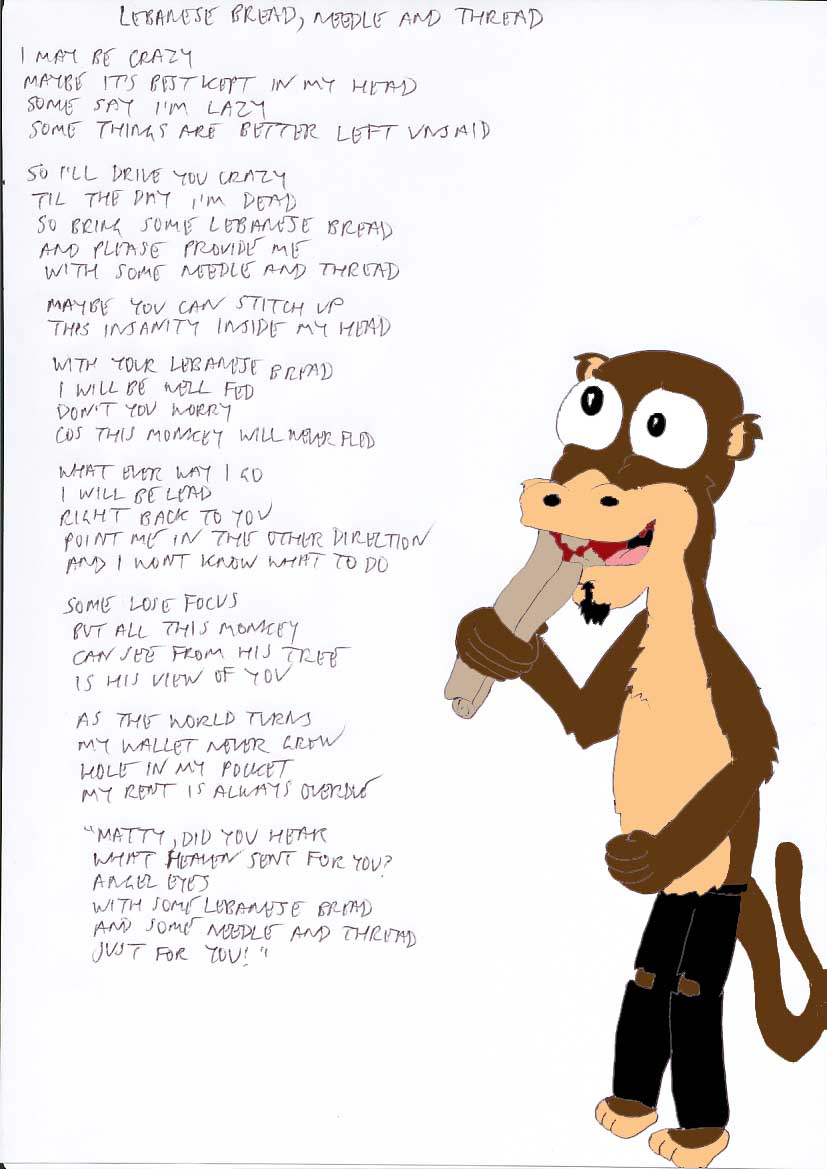 LEBANESE BREAD, NEEDLE AND THREAD
I MAY BE CRAZY
MAYBE IT'S BEST KEPT IN MY HEAD
SOME SAY I'M LAZY
SOME THINGS ARE BETTER LEFT UNSAID
SO I'LL DRIVE YOU CRAZY
TIL THE DAY I'M DEAD
SO BRING SOME LEBANESE BREAD
AND PLEASE PROVIDE ME
WITH SOME NEEDLE AND THREAD
MAYBE YOU CAN STITCH UP
THIS INSANITY INSIDE MY HEAD
WITH YOUR LEBANESE BREAD
I WILL BE WELL FED
DON'T YOU WORRY
COS THIS MONKEY WILL NEVER FLED
WHAT EVER WAY I GO
I WILL BE LEAD
RIGHT BACK TO YOU
POINT ME IN THE OTHER DIRECTION
AND I WONT KNOW WHAT TO DO
SOME LOSE FOCUS
BUT ALL THIS MONKEY
CAN SEE FROM HIS TREE
IS HIS VIEW OF YOU
AS THE WORLD TURNS
MY WALLET NEVER GREW
HOLE IN MY POCKET
MY RENT IS ALWAYS OVERDUE
"MATTY, DID YOU HEAR
WHAT HEAVEN SENT FOR YOU?
ANGEL EYES
WITH SOME LEBANESE BREAD
AND SOME NEEDLE AND THREAD
JUST FOR YOU!"